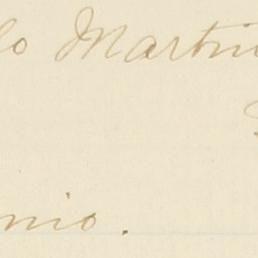 lo Martin
nio.